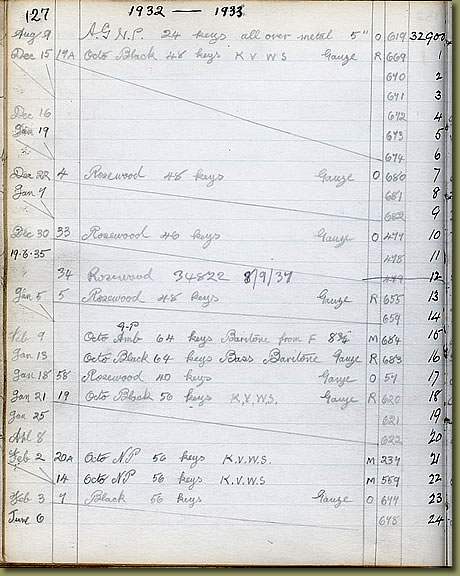 127 1932 — 1933
Aug 9 A G N.P. 24 keys all over metal 5" O 619 32900
Dec 15 19A Octo Black 48 keys K V W S Gauze R 669 1
670 2
671 3
Dec 16 672 4
Jan 19 673 5
674 6
Dec 22 4 Rosewood 48 keys Gauze O 680 7
Jan 7 681 8
682 9
Dec 30 33 Rosewood 46 keys Gauze O 477 10
19.6.35 478 11
34 Rosewood 34822 8/9/37 479 12
Jan 5 5 Rosewood 48 keys Gauze R 655 13
659 14
G-P
Feb 9 Octo Amb 64 keys Baritone from F 8¾" M 684 15
Jan 13 Octo Black 64 keys Bass Baritone Gauze R 683 16
Jan 18 58 Rosewood 40 keys Gauze O 57 17
Jan 21 19 Octo Black 56 keys K.V.W.S. Gauze R 620 18
Jan 25 621 19
8 622 20
Feb 2 20A Octo N P 56 keys K.V.W.S. M 237 21
14 Octo N P 56 keys K.V.W.S M 559 22
Feb 3 7 Black 56 keys Gauze O 677 23
June 6 678 24